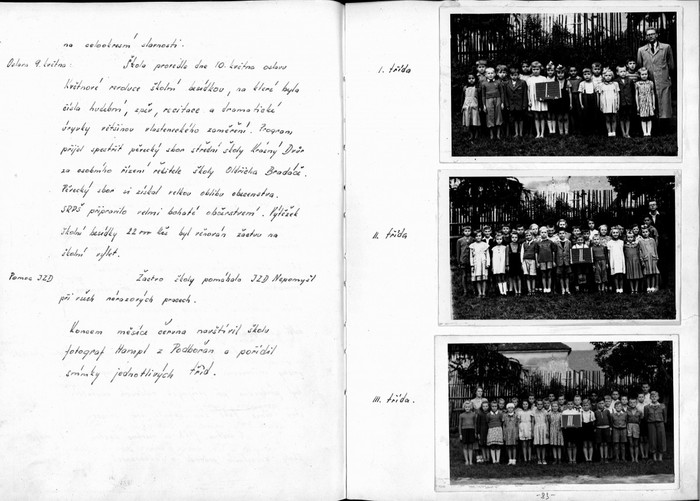 na celookresní slavnosti.
Oslava 9. května: Škola provedla dne 10. května oslavu
Květnové revoluce školní besídkou, na které byla
čísla hudební, zpěv, recitace a dramatické
úryvky většinou vlasteneckého zaměření. Program
přijel zpestřit pěvecký sbor střední školy Krásný Dvůr
za osobního řízení ředitele školy Oldřicha Bradáče.
Pěvecký sbor si získal velkou oblibu obecenstva.
SRPŠ připravilo velmi bohaté občerstvení. Výtěžek
školní besídky 22 Kčs byl věnován žactvu na
školní výlet.
Pomoc JZD Žactvo školy pomáhalo JZD Nepomyšl
při všech nárazových pracech.
Koncem měsíce června navštívil školu
fotograf Hampl z Podbořan a pořídil
snímky jednotlivých tříd.
I. třída
II. třída
III. třída.
-83-